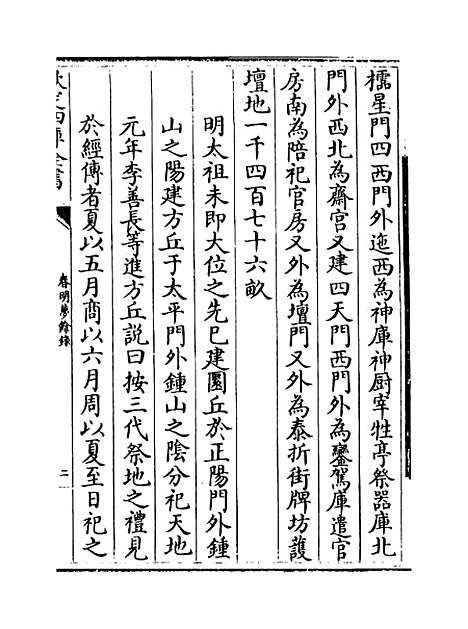 櫺星門四西門外迤西為神庫神厨宰牲亭祭器庫北
門外西北為齋宮又建四天門西門外為鑾駕庫遣官
房南為陪祀官房又外為壇門又外為泰折街牌坊護
壇地一千四百七十六畝
明太祖未即大位之先已建圜丘於正陽門外鍾
山之陽建方丘于太平門外鍾山之陰分祀天地
元年李善長等進方丘說曰按三代祭地之禮見
於經傳者夏以五月商以六月周以夏至日祀之
欽定四庫全書
春明夢餘錄
二